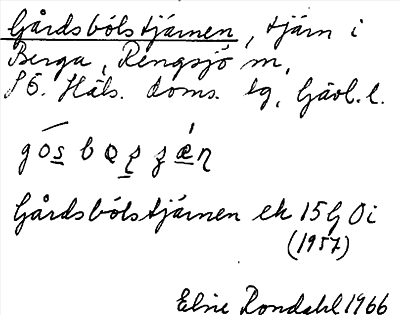 Gårdsbölstjärnen, tjärn i
Berga, Rengsjö sn,
SÖ. Häls. doms. tg, Gävl. l.
Gårdsbölstjärnen ek 15G Oi
(1957)
Elsie Rondahl 1966